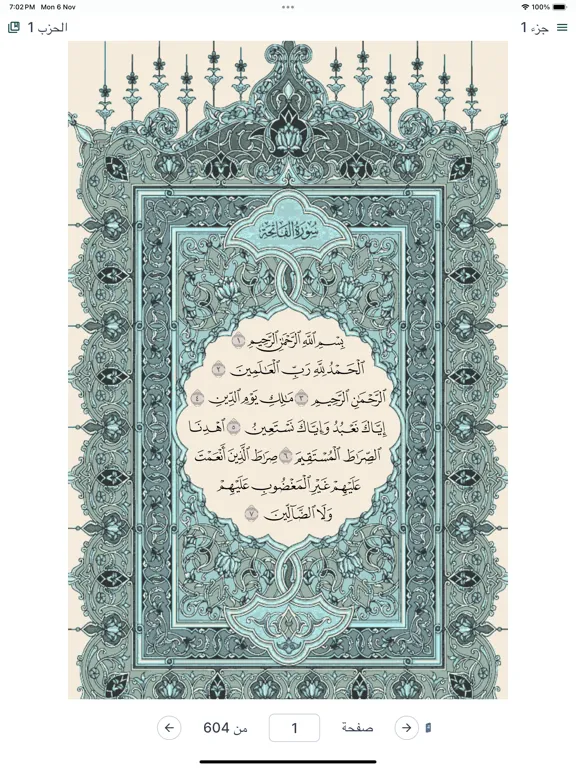 7:02 PM Mon 6 Nov
100%
جزء 1
الحزب 1
سُورَةُ الفَاتِحَةِ
بِسْمِ ٱللَّهِ ٱلرَّحْمَٰنِ ٱلرَّحِيمِ ١
ٱلْحَمْدُ لِلَّهِ رَبِّ ٱلْعَٰلَمِينَ ٢
ٱلرَّحْمَٰنِ ٱلرَّحِيمِ ٣ مَٰلِكِ يَوْمِ ٱلدِّينِ ٤
إِيَّاكَ نَعْبُدُ وَإِيَّاكَ نَسْتَعِينُ ٥ ٱهْدِنَا
ٱلصِّرَٰطَ ٱلْمُسْتَقِيمَ ٦ صِرَٰطَ ٱلَّذِينَ أَنْعَمْتَ
عَلَيْهِمْ غَيْرِ ٱلْمَغْضُوبِ عَلَيْهِمْ
وَلَا ٱلضَّآلِّينَ ٧
صفحة 1 من 604